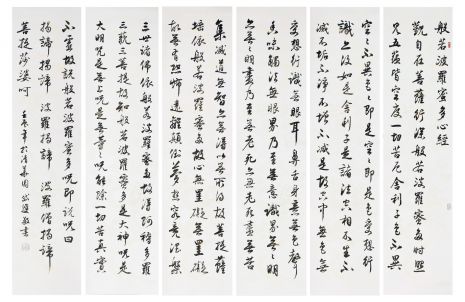 般若波羅蜜多心經
觀自在菩薩行深般若波羅蜜多時照
見五蘊皆空度一切苦厄舍利子色不異
空空不異色色即是空空即是色受想行
識亦復如是舍利子是諸法空相不生不
滅不垢不淨不增不減是故空中無色無
受想行識無眼耳鼻舌身意無色聲
香味觸法無眼界乃至無意識界無無明
亦無無明盡乃至無老死亦無老死盡無苦
集滅道無智亦無得以無所得故菩提薩
埵依般若波羅蜜多故心無罣礙無罣礙
故無有恐怖遠離顛倒夢想究竟涅槃
三世諸佛依般若波羅蜜多故得阿耨多羅
三藐三菩提故知般若波羅蜜多是大神咒是
大明咒是無上咒是無等等咒能除一切苦真實
不虛故說般若波羅蜜多咒即說咒曰
揭諦揭諦 波羅揭諦 波羅僧揭諦
菩提莎婆訶 年於清華園 書